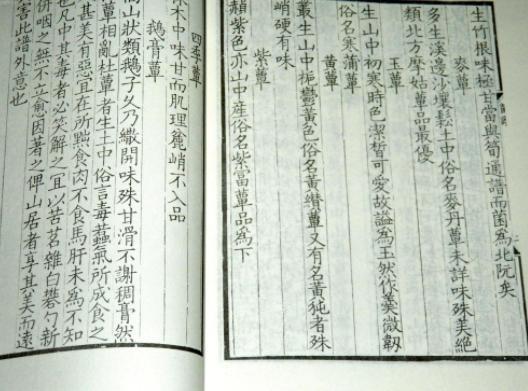 生竹根味極甘當與筍通譜而菌為北阮矣
麥蕈
多生溪邊沙壤鬆土中俗名麥丹蕈未詳味殊美絕
類北方摩姑蕈品最優
玉蕈
生山中初寒時色潔皙可愛故謚為玉然作羹微韌
俗名寒蒲蕈
黃蕈
叢生山中梔鬱黃色俗名黃纘蕈又有名黃㹠者殊
峭硬有味
紫蕈
赬紫色亦山中產俗名紫當蕈品為下
四季蕈
林木中味甘而肌理麄峭不入品
鵝膏蕈
高山狀類鵝子久乃繖開味殊甘滑不謝稠膏然
蕈相亂杜蕈者生土中俗言毒蠚氣所成食之
甚美有惡宜在所黜食肉不食馬肝未為不知
也凡中其毒者必笑解之宜以苦茗雜白礬勺新
併咽之無不立愈因著之俾山居者享其美而遠
害此譜外意也